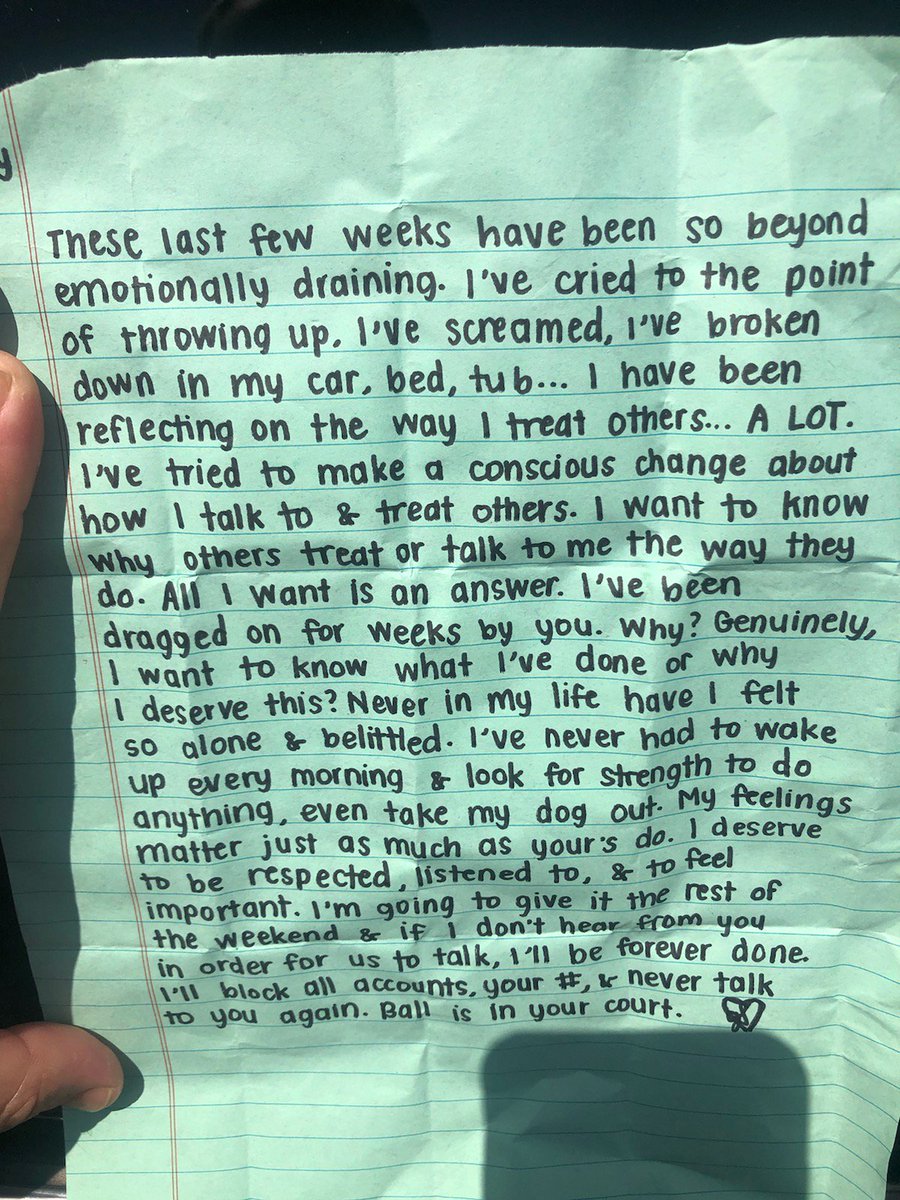 y
These last few weeks have been so beyond
emotionally draining. I've cried to the point
of throwing up. I've screamed, I've broken
down in my car, bed, tub... I have been
reflecting on the way I treat others... A LOT.
I've tried to make a conscious change about
how I talk to & treat others. I want to know
why others treat or talk to me the way they
do. All I want is an answer. I've been
dragged on for weeks by you. Why? Genuinely,
I want to know what I've done or why
I deserve this? Never in my life have I felt
so alone & belittled. I've never had to wake
up every morning & look for strength to do
anything, even take my dog out. My feelings
matter just as much as your's do. I deserve
to be respected, listened to, & to feel
important. I'm going to give it the rest of
the weekend & if I don't hear from you
in order for us to talk, I'll be forever done.
I'll block all accounts, your #, & never talk
to you again. Ball is in your court.